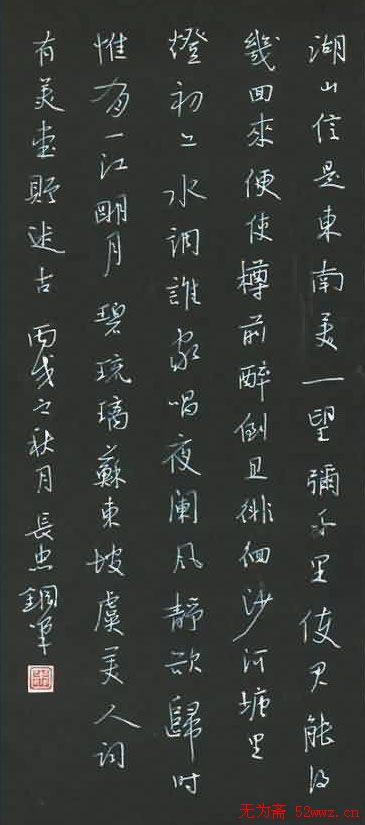 湖山信是東南美一望彌千里使君能得
幾回來便使樽前醉倒且徘徊沙河塘里
燈初上水調誰家唱夜闌風靜欲歸時
惟有一江明月碧琉璃蘇東坡虞美人詞
有美堂贈述古丙戌之秋月長忠鋼筆
无为斋 52wwz.cn